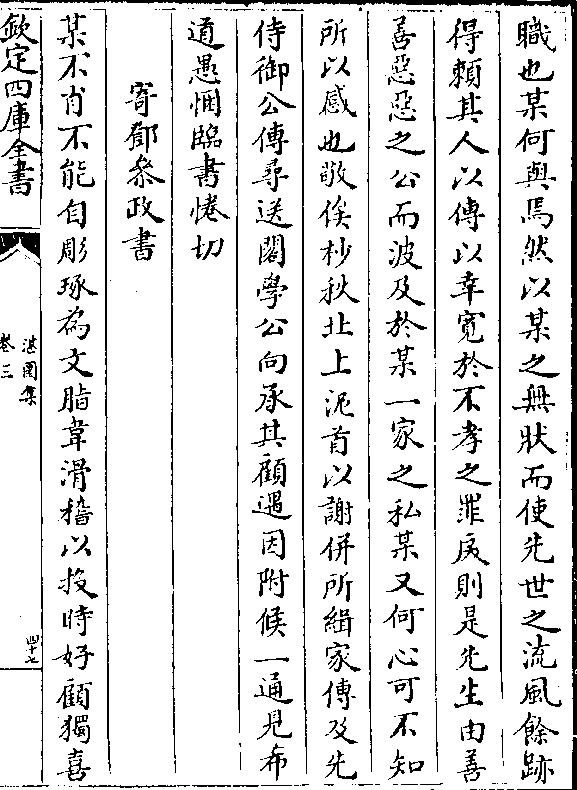 職也某何與焉然以某之無狀而使先世之流風餘跡
得賴其人以傳以幸寛於不孝之罪戾則是先生由善
善惡惡之公而波及於某一家之私某又何心可不知
所以感也敬俟杪秋北上泥首以謝併所緝家傳及先
侍御公傳尋送閣學公向承其顧遇因附候一通見布
道愚悃臨書惓切
寄鄧叅政書
某不肖不能自彫琢為文脂韋滑稽以投時好顧獨喜
欽定四庫全書
湛園集
卷三
四十七